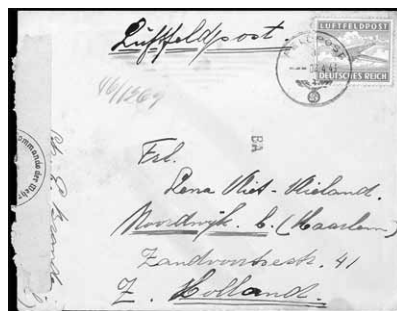 Luftfeldpost.
LUFTFELDPOST
DEUTSCHES REICH
FELDPOST
46/1569
BA
Frl.
Lena Kiet-Vlieland.
Noordwijk b. (Haarlem)
Zandvoortsestr. 41
Z. Holland.
Kommando der Wehr